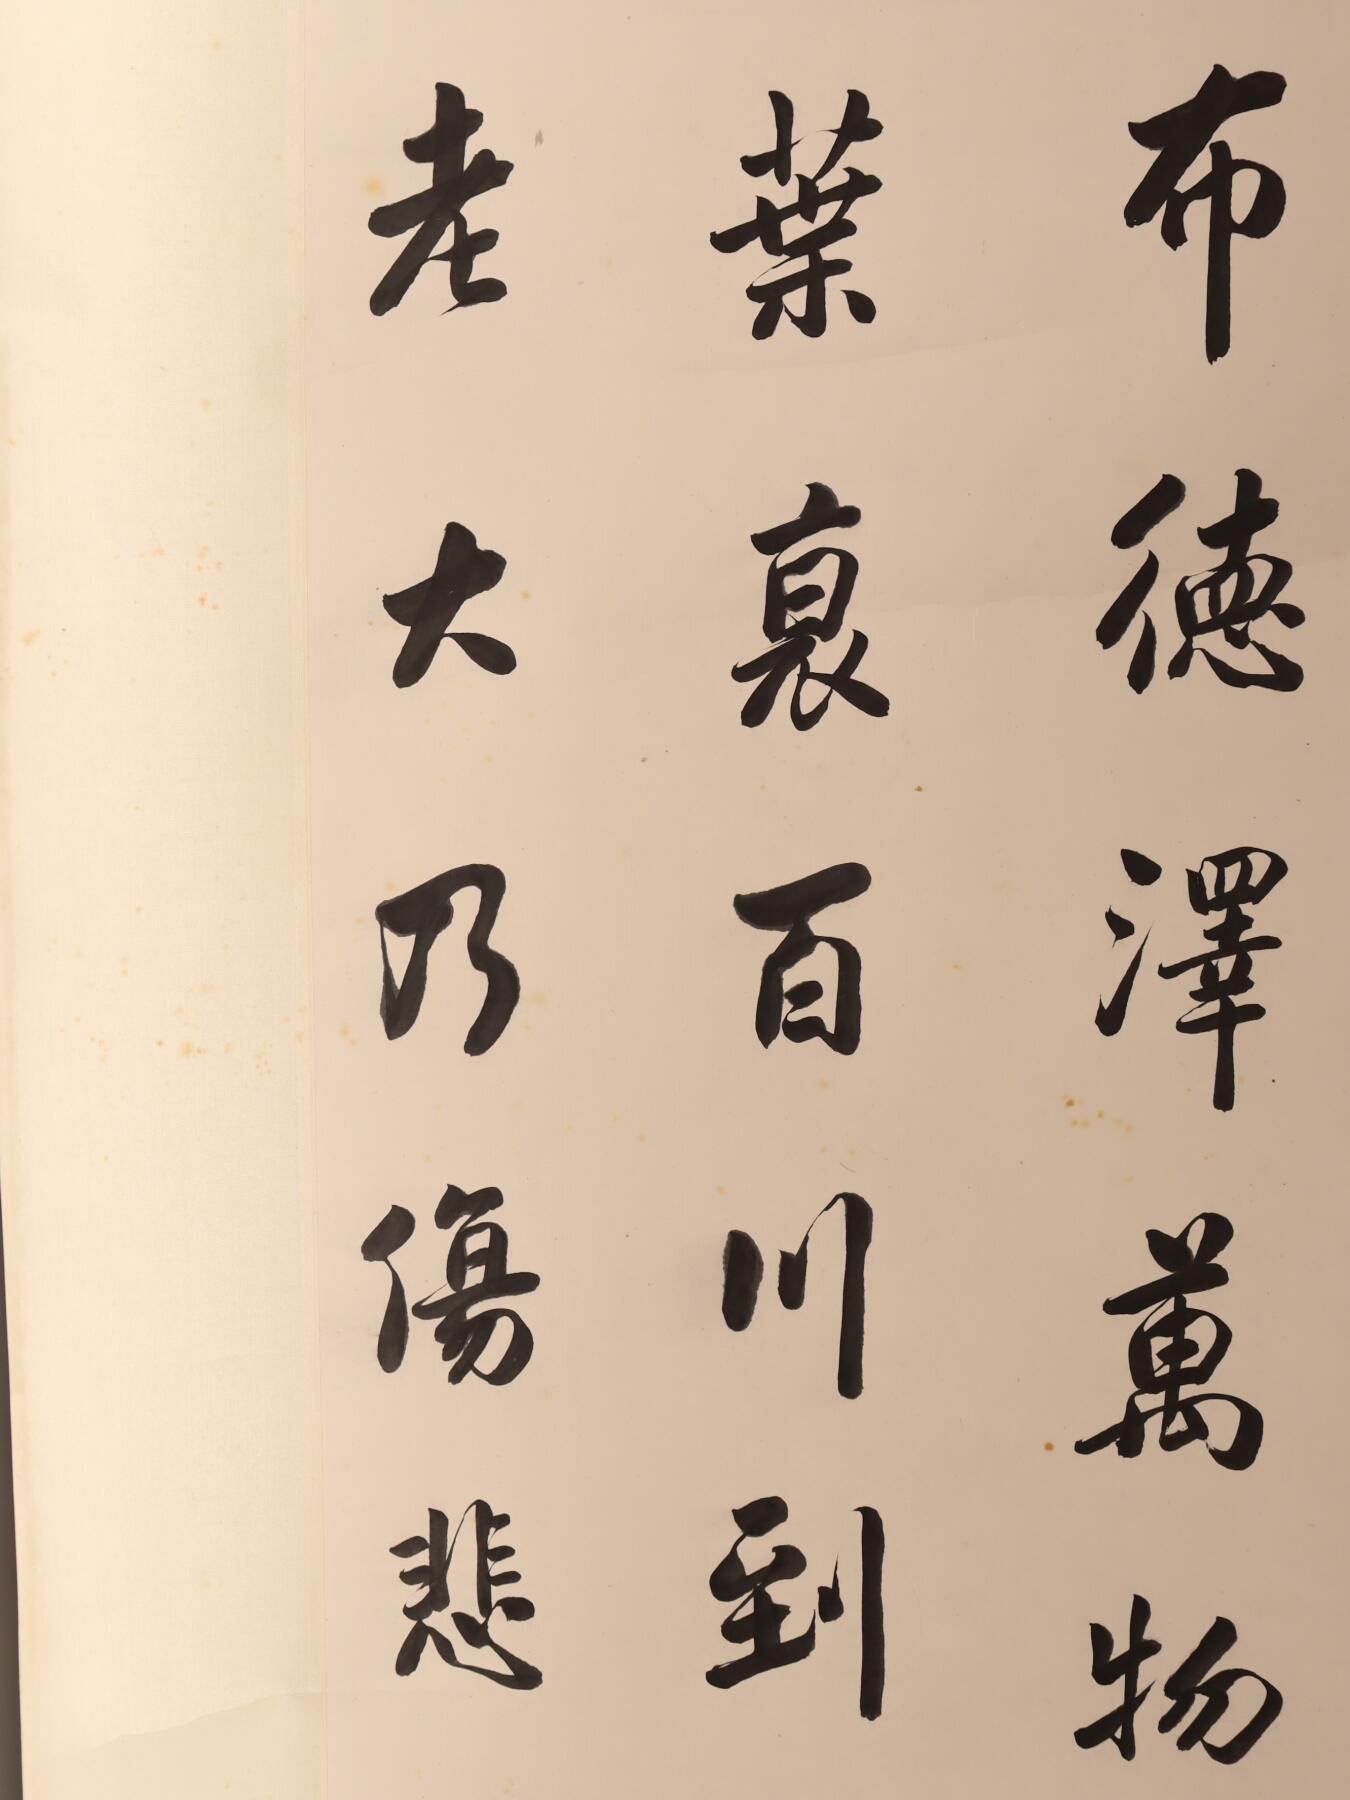 布德澤萬物
葉衰百川到
老大乃傷悲